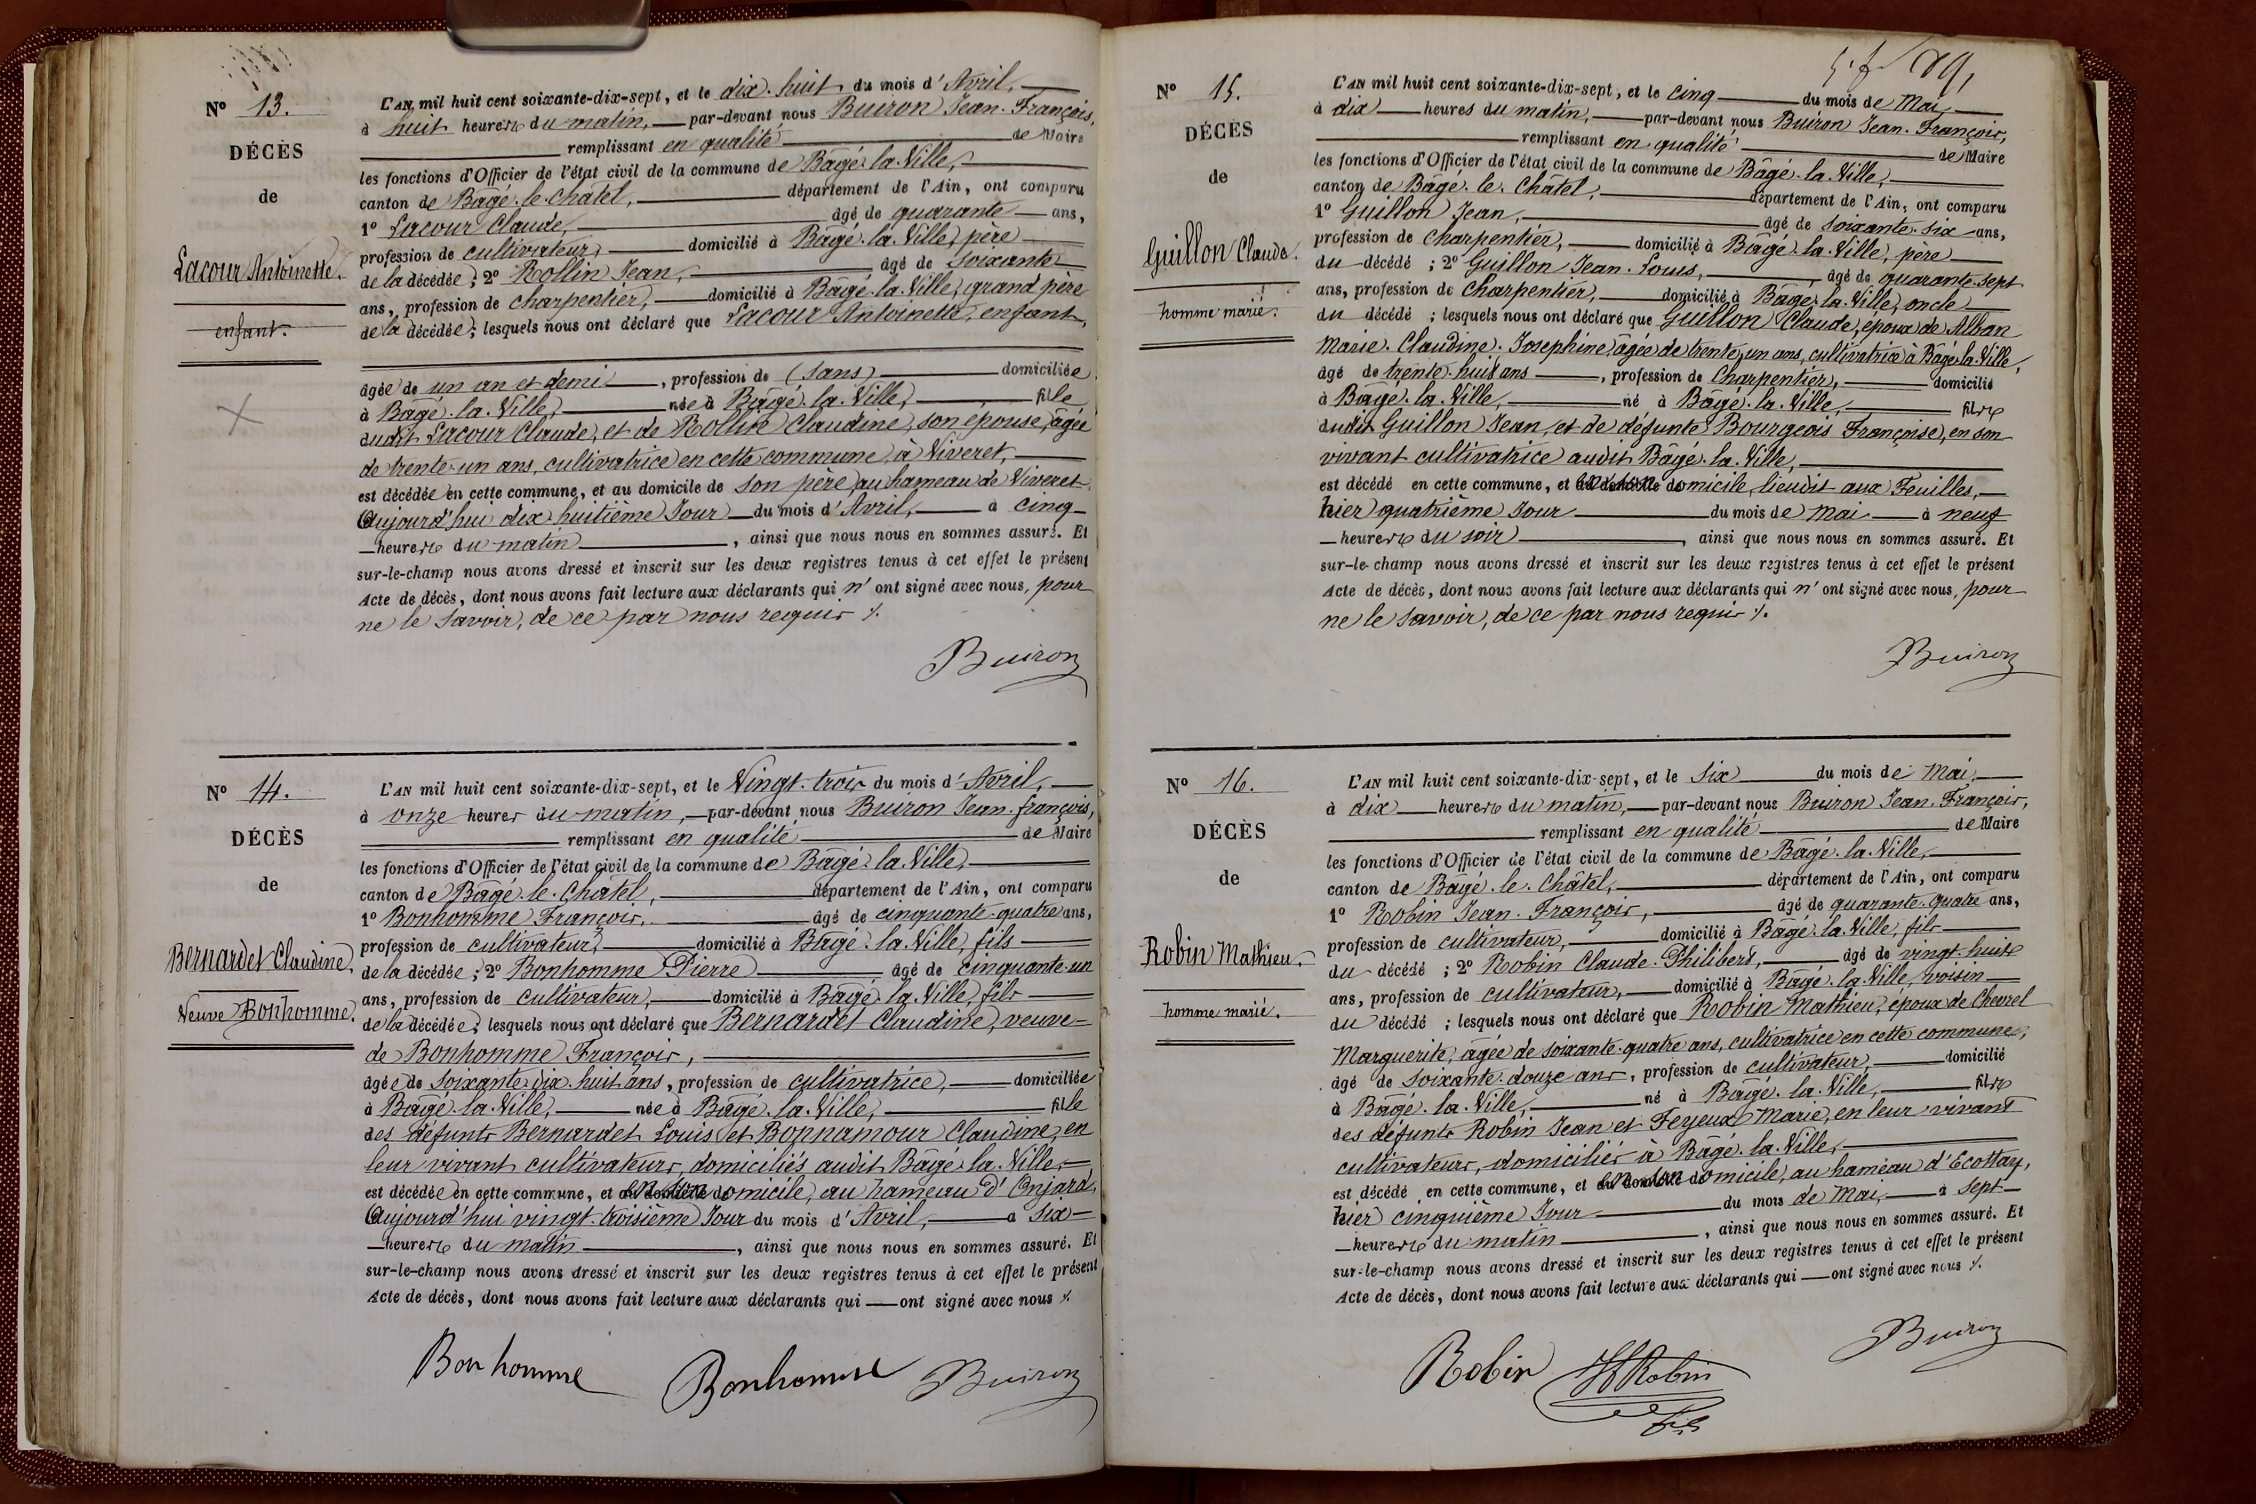 N° 13.
DÉCÈS
de
Lacour Antoinette.
enfant.
L'AN mil huit cent soixante-dix-sept, et le dix-huit du mois d'Avril,
à huit heures du matin, par-devant nous Buiron Jean-François,
remplissant en qualité de Maire
les fonctions d'Officier de l'état civil de la commune de Bâgé-la-Ville,
canton de Bâgé-le-Châtel, département de l'Ain, ont comparu
1° Lacour Claude, âgé de quarante ans,
profession de cultivateur, domicilié à Bâgé-la-Ville, père
de la décédée; 2° Rollin Jean, âgé de soixante
ans, profession de charpentier, domicilié à Bâgé-la-Ville, grand père
de la décédée; lesquels nous ont déclaré que Lacour Antoinette, enfant,
âgée de un an et demi, profession de (sans) domiciliée
à Bâgé-la-Ville, née à Bâgé-la-Ville, fille
dudit Lacour Claude, et de Rollin Claudine, son épouse, âgée
de trente-un ans, cultivatrice en cette commune, à Viveret,
est décédée en cette commune, et au domicile de son père, au hameau de Viveret
Aujourd'hui dix-huitième Jour du mois d'Avril, à cinq
heures du matin, ainsi que nous nous en sommes assuré. Et
sur-le-champ nous avons dressé et inscrit sur les deux registres tenus à cet effet le présent
Acte de décès, dont nous avons fait lecture aux déclarants qui n'ont signé avec nous, pour
ne le savoir, de ce par nous requis ./.
Buiron
N° 14.
DÉCÈS
de
Bernardet Claudine,
Veuve Bonhomme.
L'AN mil huit cent soixante-dix-sept, et le Vingt-trois du mois d'Avril,
à onze heures du matin, par-devant nous Buiron Jean-françois,
remplissant en qualité de Maire
les fonctions d'Officier de l'état civil de la commune de Bâgé-la-Ville,
canton de Bâgé-le-Châtel, département de l'Ain, ont comparu
1° Bonhomme François, âgé de cinquante-quatre ans,
profession de cultivateur, domicilié à Bâgé-la-Ville, fils
de la décédée; 2° Bonhomme Pierre âgé de cinquante-un
ans, profession de cultivateur, domicilié à Bâgé-la-Ville, fils
de la décédée; lesquels nous ont déclaré que Bernardet Claudine, veuve
de Bonhomme François,
âgée de soixante-dix-huit ans, profession de cultivatrice, domiciliée
à Bâgé-la-Ville, née à Bâgé-la-Ville, fille
des défunts Bernardet Louis et Bonnamour Claudine, en
leur vivant cultivateurs, domiciliés audit Bâgé-la-Ville,
est décédée en cette commune, et en son domicile, au hameau d'Onjard,
Aujourd'hui vingt-troisième Jour du mois d'Avril, à six
heures du matin, ainsi que nous nous en sommes assuré. Et
sur-le-champ nous avons dressé et inscrit sur les deux registres tenus à cet effet le présent
Acte de décès, dont nous avons fait lecture aux déclarants qui ont signé avec nous ./.
Bonhomme Bonhomme Buiron
N° 15.
DÉCÈS
de
Guillon Claude.
homme marié.
L'AN mil huit cent soixante-dix-sept, et le cinq du mois de Mai
à dix heures du matin, par-devant nous Buiron Jean-François,
remplissant en qualité de Maire
les fonctions d'Officier de l'état civil de la commune de Bâgé-la-Ville,
canton de Bâgé-le-Châtel, département de l'Ain, ont comparu
1° Guillon Jean, âgé de soixante-six ans,
profession de charpentier, domicilié à Bâgé-la-Ville, père
du décédé; 2° Guillon Jean-Louis, âgé de quarante-sept
ans, profession de Charpentier, domicilié à Bâgé-la-Ville, oncle
du décédé; lesquels nous ont déclaré que Guillon Claude, époux de Alban
Marie-Claudine-Josephine, âgée de trente-un ans, cultivatrice à Bâgé-la-Ville,
âgé de trente-huit ans, profession de Charpentier, domicilié
à Bâgé-la-Ville, né à Bâgé-la-Ville, fils
dudit Guillon Jean, et de défunte Bourgeois Françoise, en son
vivant cultivatrice audit Bâgé-la-Ville,
est décédé en cette commune, et en son domicile, lieudit aux Feuilles,
hier quatrième Jour du mois de Mai à neuf
heures du soir, ainsi que nous nous en sommes assuré. Et
sur-le-champ nous avons dressé et inscrit sur les deux registres tenus à cet effet le présent
Acte de décès, dont nous avons fait lecture aux déclarants qui n'ont signé avec nous, pour
ne le savoir, de ce par nous requis ./.
Buiron
N° 16.
DÉCÈS
de
Robin Mathieu.
homme marié.
L'AN mil huit cent soixante-dix-sept, et le Six du mois de Mai,
à dix heures du matin, par-devant nous Buiron Jean-François,
remplissant en qualité de Maire
les fonctions d'Officier de l'état civil de la commune de Bâgé-la-Ville,
canton de Bâgé-le-Châtel, département de l'Ain, ont comparu
1° Robin Jean-François, âgé de quarante-quatre ans,
profession de cultivateur, domicilié à Bâgé-la-Ville, fils
du décédé; 2° Robin Claude-Philibert, âgé de vingt-huit
ans, profession de cultivateur, domicilié à Bâgé-la-Ville, voisin
du décédé; lesquels nous ont déclaré que Robin Mathieu, époux de Chevrel
Marguerite, âgée de soixante-quatre ans, cultivatrice en cette commune,
âgé de soixante-douze ans, profession de cultivateur, domicilié
à Bâgé-la-Ville, né à Bâgé-la-Ville, fils
des défunts Robin Jean et Feyeux Marie, en leur vivant
cultivateurs, domiciliés à Bâgé-la-Ville,
est décédé en cette commune, et en son domicile, au hameau d'Ecottay,
hier cinquième Jour du mois de Mai, à sept
heures du matin, ainsi que nous nous en sommes assuré. Et
sur-le-champ nous avons dressé et inscrit sur les deux registres tenus à cet effet le présent
Acte de décès, dont nous avons fait lecture aux déclarants qui ont signé avec nous ./.
Robin Robin Buiron